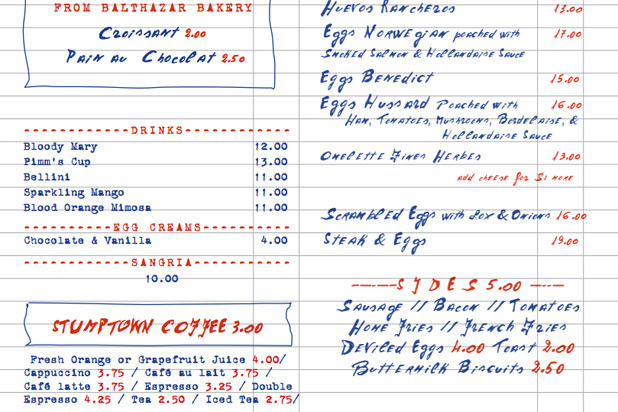 FROM BALTHAZAR BAKERY
Croissant 2.00
Pain au Chocolat 2.50
------------DRINKS------------
Bloody Mary 12.00
Pimm's Cup 13.00
Bellini 11.00
Sparkling Mango 11.00
Blood Orange Mimosa 11.00
----------EGG CREAMS----------
Chocolate & Vanilla 4.00
------------SANGRIA-----------
10.00
STUMPTOWN COFFEE 3.00
Fresh Orange or Grapefruit Juice 4.00/
Cappuccino 3.75 / Café au lait 3.75 /
Café latte 3.75 / Espresso 3.25 / Double
Espresso 4.25 / Tea 2.50 / Iced Tea 2.75/
Huevos Rancheros 13.00
Eggs Norwegian poached with 17.00
Smoked Salmon & Hollandaise Sauce
Eggs Benedict 15.00
Eggs Hussard Poached with 16.00
Ham, Tomatoes, Mushrooms, Bordelaise, &
Hollandaise Sauce
Omelette Fines Herbes 13.00
add cheese for $1 more
Scrambled Eggs with Lox & Onions 16.00
Steak & Eggs 19.00
-----SIDES 5.00-----
Sausage // Bacon // Tomatoes
Home Fries // French Fries
Deviled Eggs 4.00 Toast 2.00
Buttermilk Biscuits 2.50